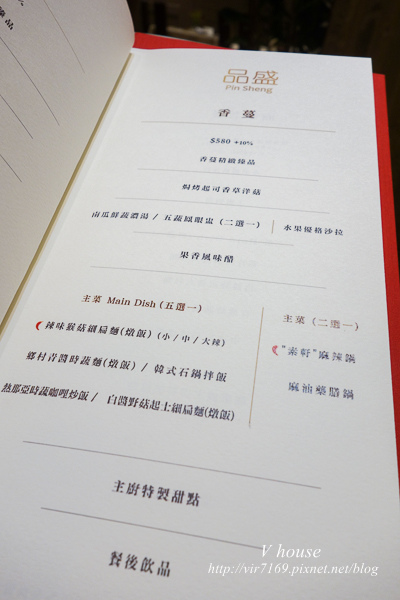 臻品
品盛
Pin Sheng
香蔓
$580 +10%
香蔓精緻臻品
焗烤起司香草洋菇
南瓜鮮蔬濃湯 / 五蔬鳳眼盅 (二選一)
水果優格沙拉
果香風味醋
主菜 Main Dish (五選一)
辣味猴菇細扁麵(燉飯) (小/中/大辣)
鄉村青醬時蔬麵(燉飯) / 韓式石鍋拌飯
熱那亞時蔬咖哩炒飯 / 白醬野菇起士細扁麵(燉飯)
主菜 (二選一)
"素軒"麻辣鍋
麻油藥膳鍋
主廚特製甜點
餐後飲品
V house
http://vir7169.pixnet.net/blog